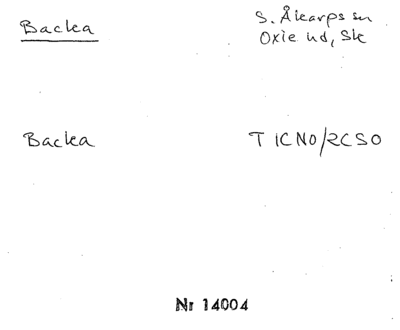 Backa
S. Åkarps sn
Oxie hd, Sk
Backa
T 1CNO/2CSO
Nr 14004